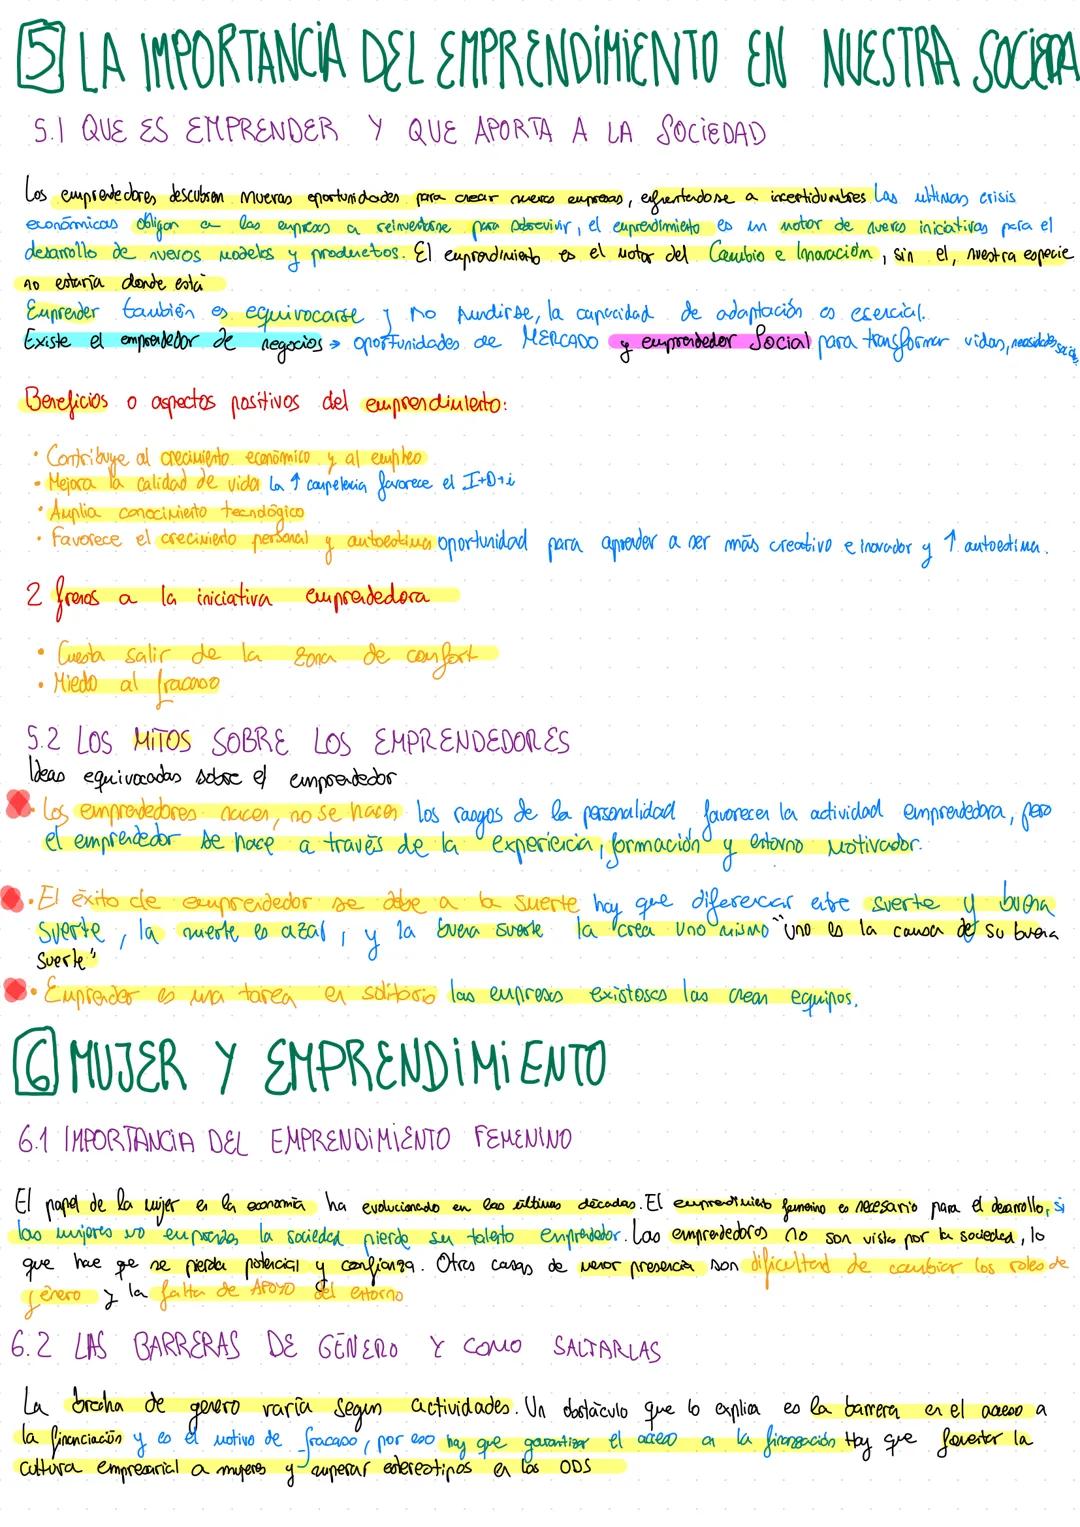 5 LA IMPORTANCIA DEL EMPRENDIMIENTO EN NUESTRA SOCIEDA
5.1 QUE ES EMPRENDER Y QUE APORTA A LA SOCIEDAD
Los emprendedores descubren nuevas oportunidades para crear nuevas empresas, enfrentandose a incertidumbres Las ultimas crisis
económicas obligan a las empresas a reinventarse para sobrevivir, el emprendimiento es un motor de nuevas iniciativas para el
desarrollo de nuevos modelos y productos. El emprendimiento es el motor del Cambio e Innovación, sin el, nuestra especie
no estaría donde está
Emprender también es equivocarse y no rendirse, la capacidad de adaptación es esencial.
Existe el emprendedor de negocios → oportunidades de MERCADO y emprendedor Social para transformar vidas, necesidades
Beneficios o aspectos positivos del emprendimiento:
• Contribuye al crecimiento económico y al empleo
• Mejora la calidad de vida La ↑ competencia favorece el I+D+i
• Amplia conocimiento tecnológico
• Favorece el crecimiento personal y autoestima oportunidad para aprender a ser más creativo e inovador y ↑ autoestima.
2 frenos a la iniciativa emprendedora
• Cuesta salir de la zona de confort
• Miedo al fracaso
5.2 LOS MITOS SOBRE LOS EMPRENDEDORES
Ideas equivocadas sobre el emprendedor
• Los emprendedores nacen, no se hacen los rasgos de la personalidad favorecen la actividad emprendedora, pero
el emprendedor se hace a través de la experiencia, formación y entorno motivador.
• El éxito de emprendedor se debe a la suerte hay que diferenciar entre suerte y buena
suerte, la suerte es azar, y la buena suerte la crea uno mismo "uno es la causa de su buena
suerte"
• Emprender es una tarea en solitario las empresas existosas las crean equipos.
6 MUJER Y EMPRENDIMIENTO
6.1 IMPORTANCIA DEL EMPRENDIMIENTO FEMENINO
El papel de la mujer en la economía ha evolucionado en las últimas décadas. El emprendimiento femenino es necesario para el desarrollo, si
las mujeres no emprenden la sociedad pierde su talento emprendedor. Las emprendedoras no son vistas por la sociedad, lo
que hace que se pierda potencial y confianza. Otras causas de menor presencia son dificultad de cambiar los roles de
género y la falta de APOYO del entorno
6.2 LAS BARRERAS DE GÉNERO Y COMO SALTARLAS
La brecha de genero varía segun actividades. Un obstáculo que lo explica es la barrera en el acceso a
la financiación y es el motivo de fracaso, por eso hay que garantizar el acceso a la financiación Hay que fomentar la
cultura empresarial a mujeres y superar estereotipos en los ODS